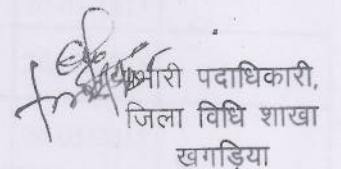 प्रभारी पदाधिकारी,
जिला विधि शाखा
खगड़िया